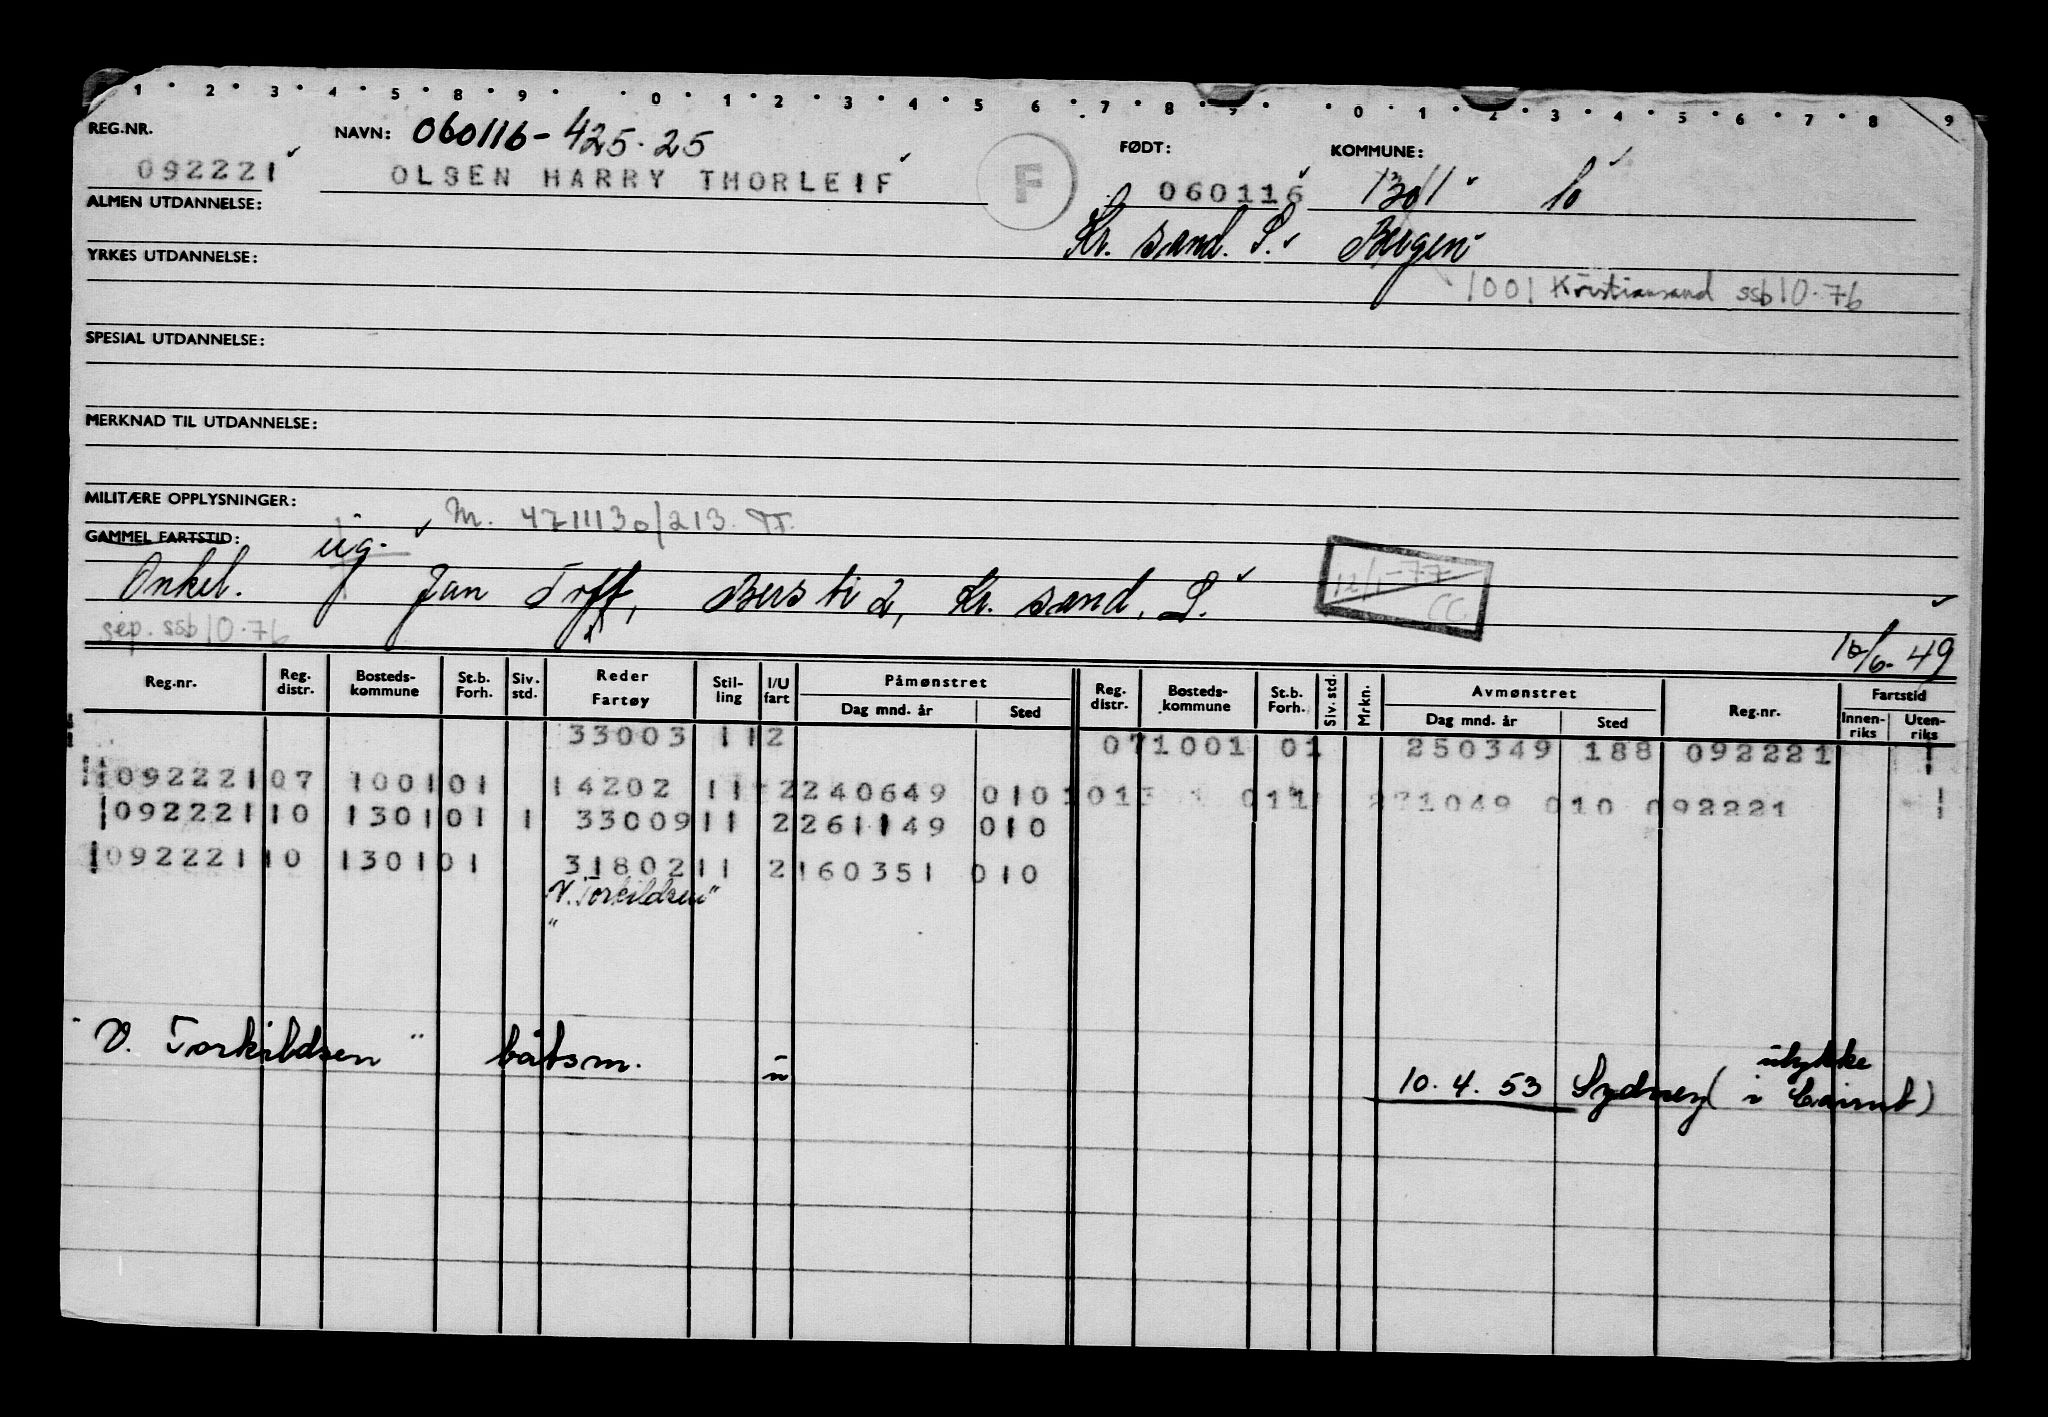 1 2 3 4 5 8 9 0 1 2 3 4 5 6 7 8 9 0 1 2 3 4 5 6 7 8 9
REG.NR. NAVN: 060116-425.25 FØDT: KOMMUNE:
092221 OLSEN HARRY THORLEIF F 060116 1301 10
ALMEN UTDANNELSE: Kr. sand. S. Bergen
YRKES UTDANNELSE: 1001 Kristiansand ssb 10.76
SPESIAL UTDANNELSE:
MERKNAD TIL UTDANNELSE:
MILITÆRE OPPLYSNINGER: M. 471113o/213.
GAMMEL FARTSTID: ug.
Onkel. Jan Toft, Bersti 2, Kr. sand. S. 12/1-77 CC
sep. ssb 10.76 10/6-49
Reg.nr. Reg. distr. Bosteds-kommune St.b. Forh. Siv. std. Reder Fartøy Stil-ling I/U fart Påmønstret Dag mnd. år Sted Reg. distr. Bosteds-kommune St.b. Forh. Siv. std. Mrkn. Avmønstret Dag mnd. år Sted Reg.nr. Fartstid Innen-riks Uten-riks
33003 11 2 07 1001 01 250349 188 092221 1
092221 07 1001 01 14202 11 2 240649 010 10 011 271049 010 092221 1
092221 10 1301 01 1 33009 11 2 261149 010
092221 10 1301 01 31802 11 2 160351 010
V. Torkildsen"
"
"V. Torkildsen" båtsm. u 10.4.53 Sydney (ulykke
i Cairns)